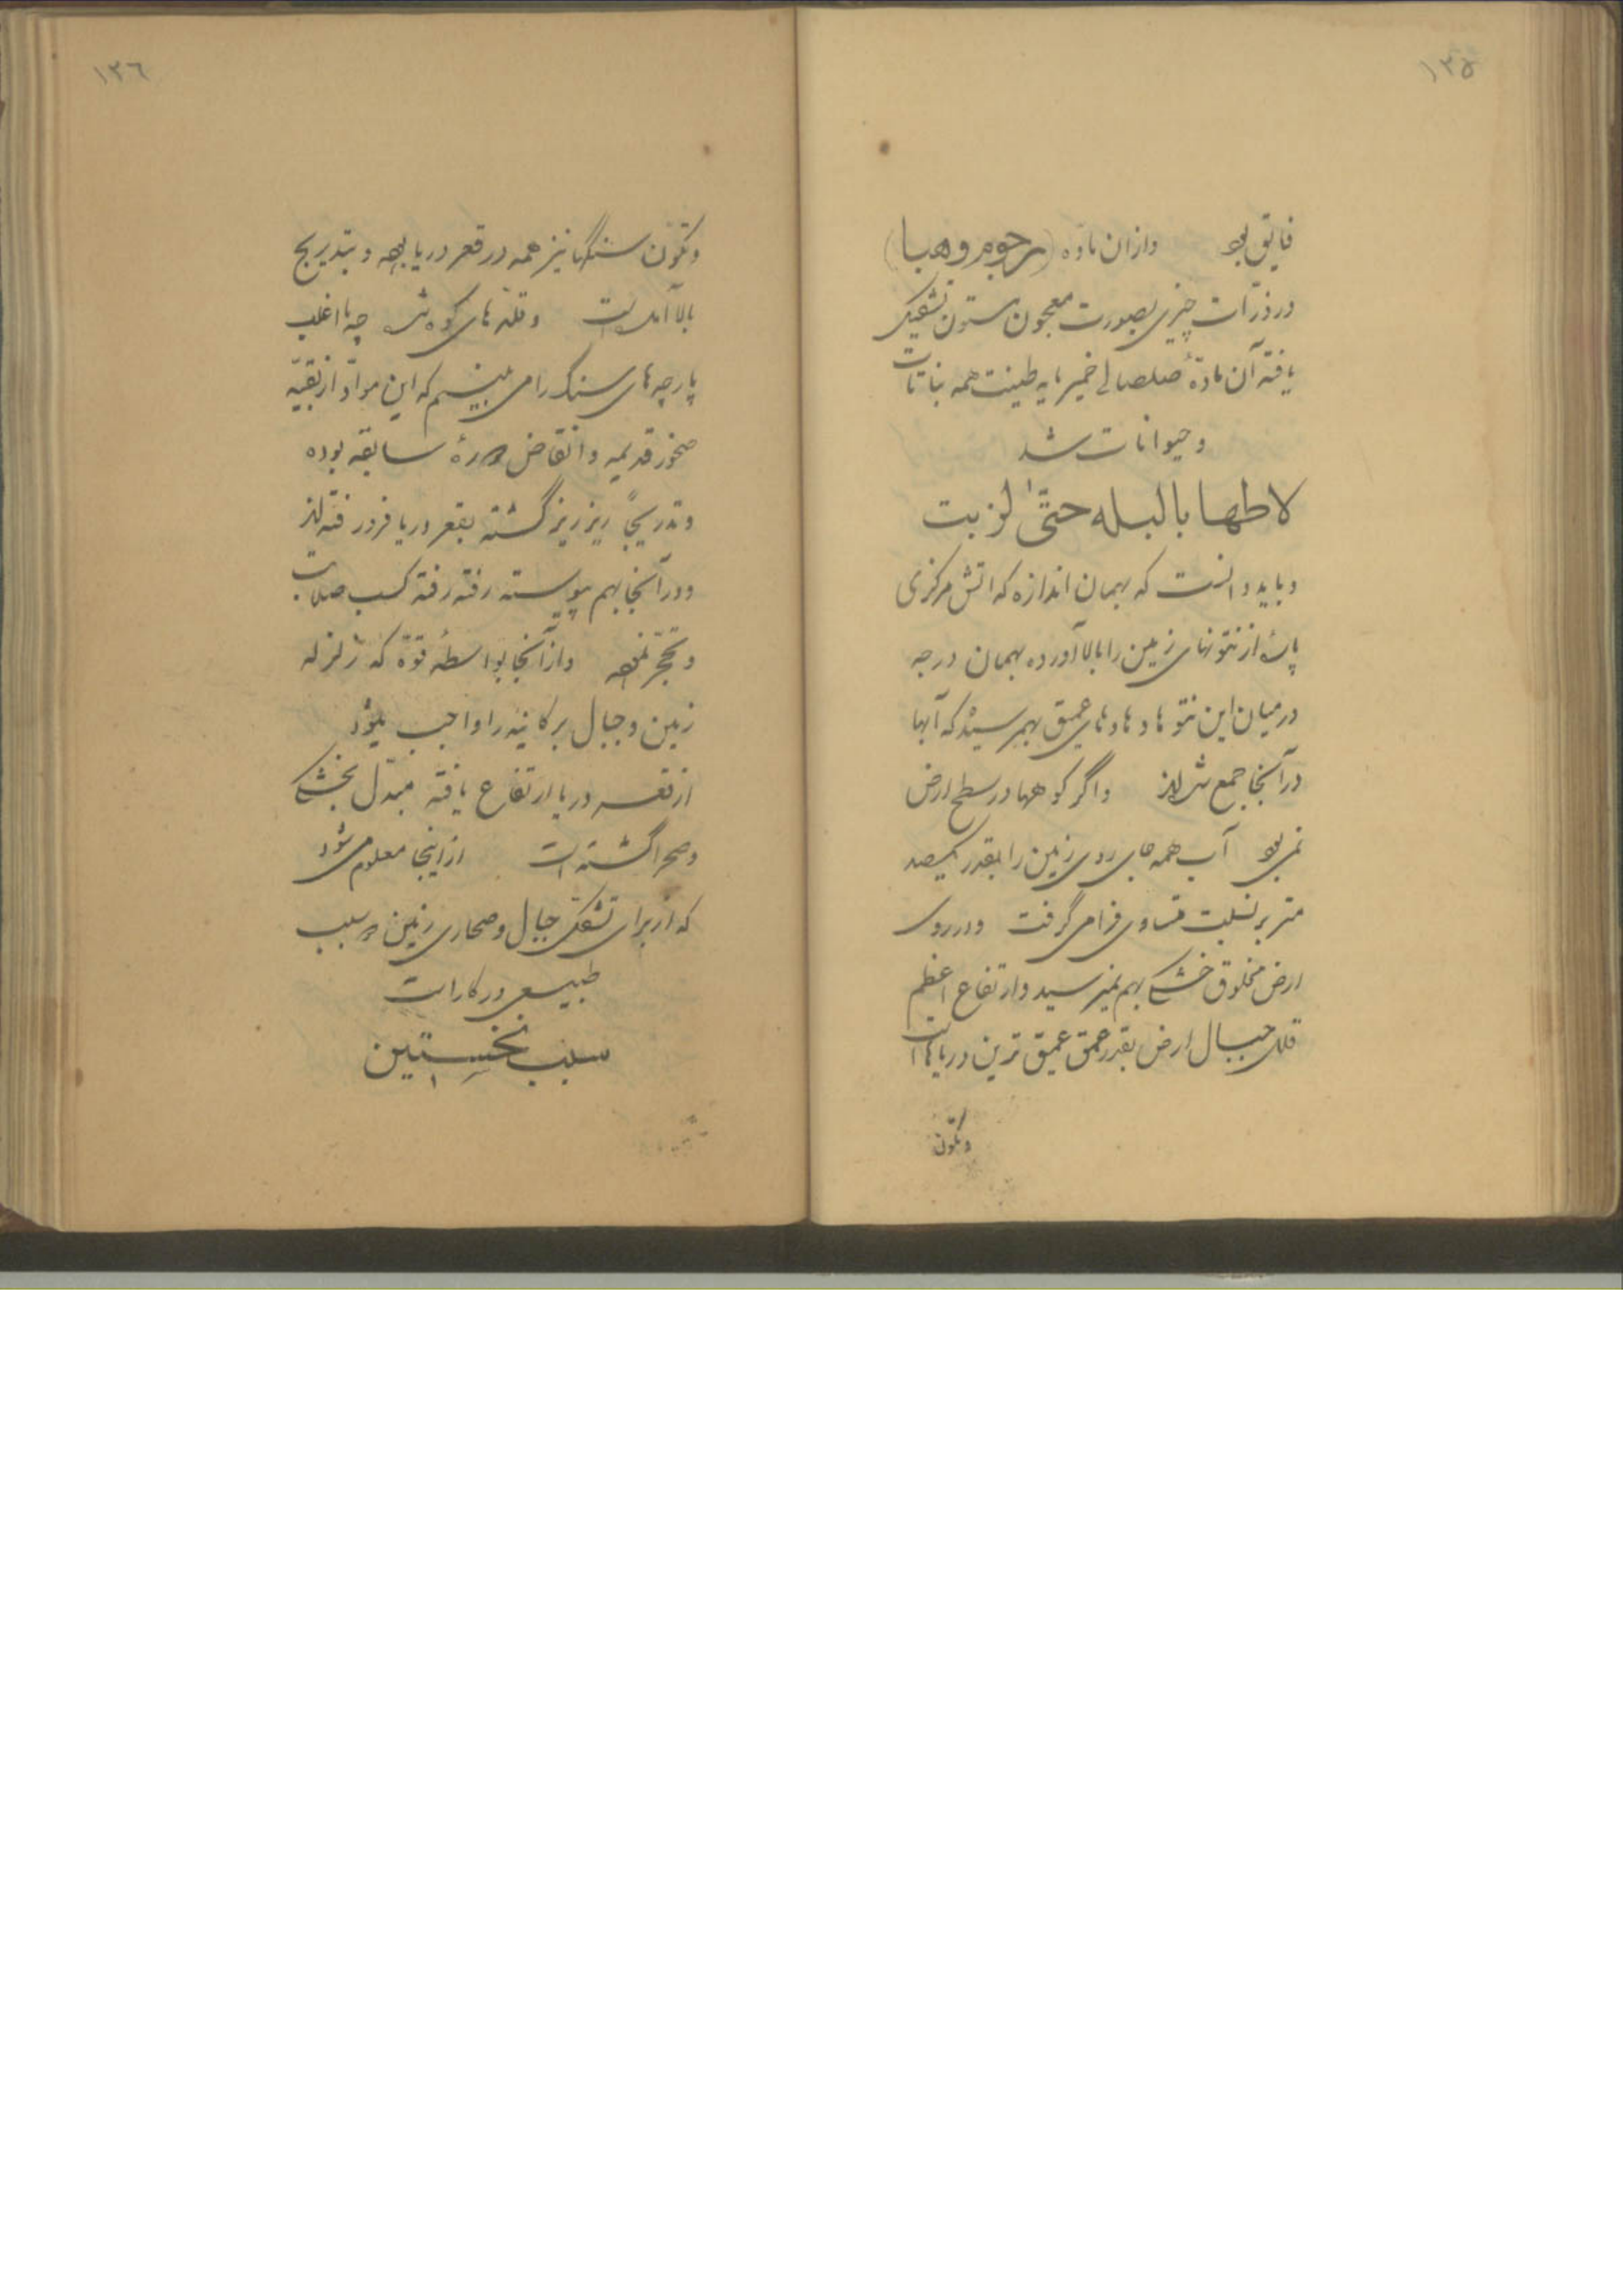 ١٣٥
فایق بود وازان ماده (رجوم وهبا)
و ذرّات چیزی بصورت معجون ستون تشکیل
یافته آن مادهٔ صلصالی خمیر مایه طینت همه نباتات
و حیوانات شد
لاطها بالبله حتّیٰ لزبت
و باید دانست که بهمان اندازه که اتش مرکزی
پارهٔ از نتوءهای زمین را بالا آورده بهمان درجه
در میان این نتوءها وهادهای عمیق بهم رسیده که آبها
در آنجا جمع شده‌اند واگر کوهها در سطح ارض
نمی بود آب همه جای روی زمین را بقدر یکصد
متر بر نسبت متساوی فرا می گرفت و در روی
ارض مخلوق خشکی بهم نمیرسید وارتفاع اعظم
قلل جبال ارض بقدر عمق عمیق ترین دریاها است
وتکوّن
١٣٦
وتکوّن سنگها نیز همه در قعر دریا بوده و بتدریج
بالا آمده است و قلّه های کوه شده چه ما اغلب
پارچه های سنگ را می بینیم که این موادّ از بقیّه
صخور قدیمه وانقاض دورهٔ سابقه بوده
وتدریجاً ریز ریز گشته بقعر دریا فرو رفته‌اند
ودر آنجا بهم پیوسته رفته رفته کسب صلابت
و تحجّر نموده واز آنجا بواسطهٔ قوّة که زلزله
زمین و جبال برکانیه را واجب میشود
از قعر دریا ارتفاع یافته مبدّل بخشکی
وصحرا گشته است ازاینجا معلوم می شود
که از برای تشکّل جبال وصحاری زمین دو سبب
طبیعی در کار است
سبب نخستین